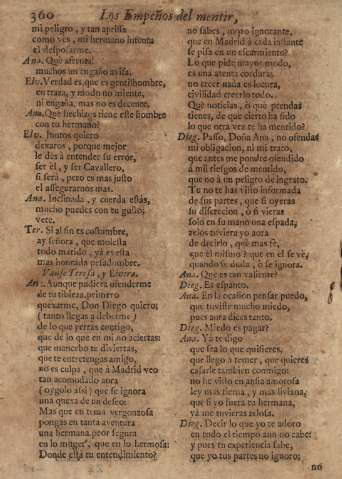 360 Los Empeños del mentir,
mi peligro, y tan aprissa
como ves, mi hermano intenta
el desposarme.
Ana. Què afrenta!
muchos un engaño avisa.
Elv. Verdad es, que es gentilhombre,
en traza, y modo no miente,
ni engaña, mas no es decente.
Ana. Què hechizos tiene este hombre
con tu hermano?
Elv. Juntos quiero
dexaros, porque mejor
le des à entender su error,
ser èl, y ser Cavallero,
si serà, pero es mas justo
el assegurarnos mas.
Ana. Inclinada, y cuerda estàs,
mucho puedes con tu gusto;
vete.
Ter. Si al fin es costumbre,
ay señora, que molesta
todo marido, yà està
mas honrada pesadumbre.
Vanse Teresa, y Elvira.
An. Aunque pudiera ofenderme
de tu tibieza, primero
quexarme, Don Diego quiero;
(tanto llegas à deberme)
de lo que yerras contigo,
que de lo que en mi no aciertas:
que mancebo te diviertas,
que te entretengas amigo,
no es culpa, que à Madrid veo
tan acomodado aora
(oygolo assi) que se ignora
una quexa de un desseo.
Mas que en tema vergonzosa
pongas en tanta aventura
una hermana, poco segura
en lo muger, que en lo hermosa:
Donde està tu entendimiento?
no sabes, mozo ignorante,
que en Madrid à cada instante
se pisa en un escarmiento?
Lo que pide mayor modo,
es una atenta cordura:
no creer nada es locura,
civilidad creerlo todo.
Què noticias, ò què prendas
tienes, de que cierto ha sido
lo que otra vez te ha mentido?
Dieg. Passo, Doña Ana, no ofendas
mi obligacion, ni mi trato,
que antes me pondrè ofendido
à mil riesgos de mentido,
que no à un peligro de ingrato.
Tu no te has visto informada
de sus partes, que si oyeras
su discrecion, ò si vieras
solo en su mano una espada;
zelos tuviera yo aora
de decirlo, què mas fè,
que èl mismo? que en èl se vè,
quando se duda, ò se ignora.
Ana. Que es tan valiente?
Dieg. Es espanto.
Ana. En la ocasion pensar puedo,
que tuviste mucho miedo,
pues aora dices tanto.
Dieg. Miedo es pagar?
Ana. Yà te digo
que sea lo que quisieres,
que llego à temer, que quieres
casarle tambien conmigo:
no he visto en ansia amorosa
ley mas tierna, y mas liviana,
que si yo fuera tu hermana,
yà me tuvieras zelosa.
Dieg. Decir lo que yo te adoro
en todo el tiempo aun no cabe:
y pues tu experiencia sabe,
que yo tus partes no ignoro;
no